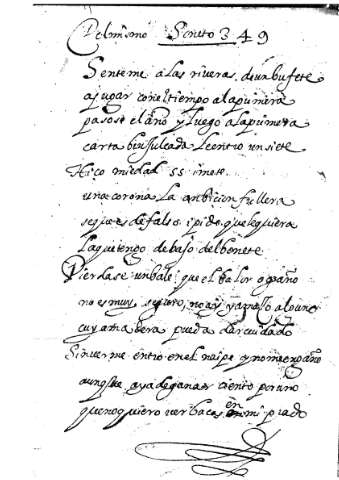 Del mismo Soneto 349
Senteme a las riveras de un bufete
a jugar con el tiempo a la primera
pasose el año y luego a la primera
carta brujuleada le entro un siete
Hiço mi edad 55 i mete
una corona la anbicion fullera
se que es de falso i pide que le quiera
la que tengo debajo del bonete
Pierdase un bale que el balor ogaño
no es muy seguro no ay
cuya manera pueda dar cuidado
Sin verme entro en el naipe y no me engaño
aunque aya de ganar ciento por uno
que no quiero ver baces en mi prado